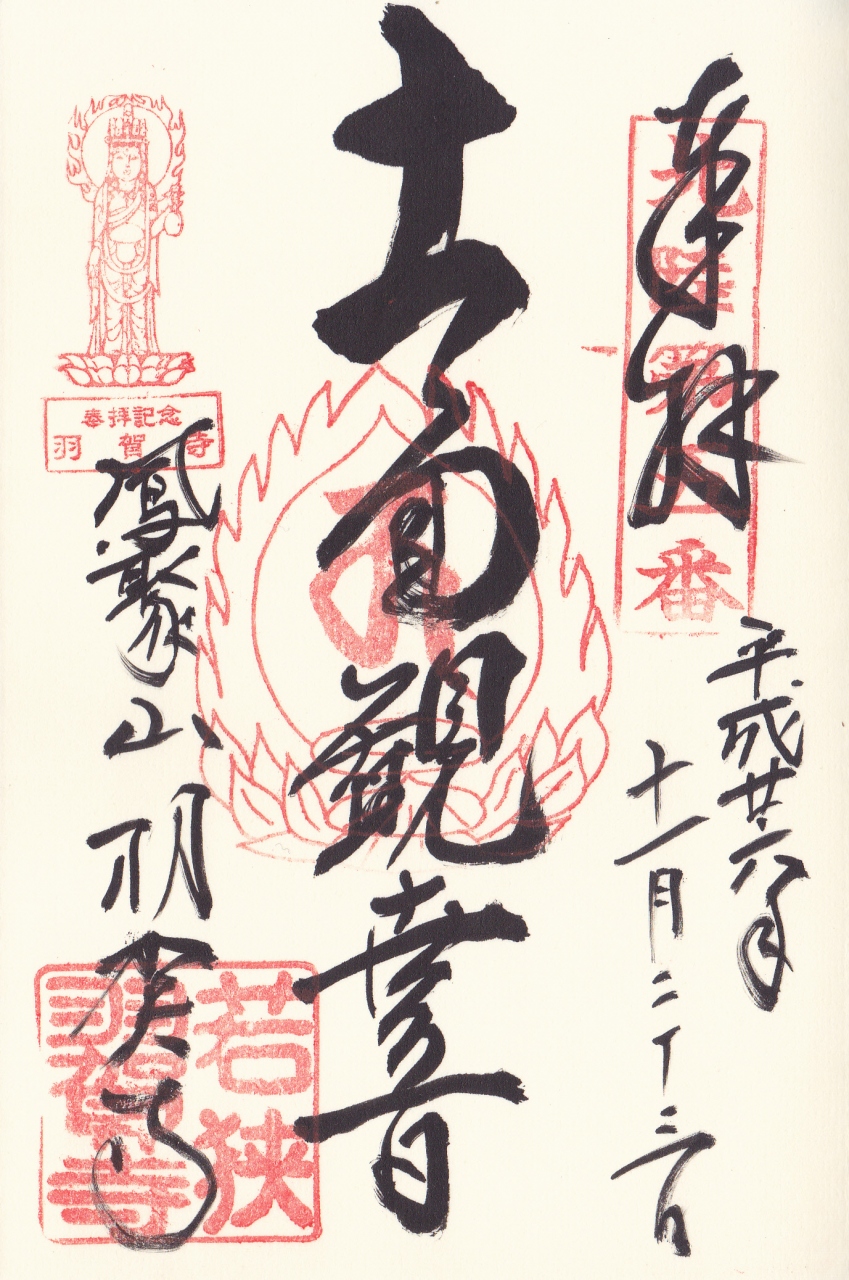 奉拝
平成廿六年
十一月二十三日
十一面觀世音
奉拝記念
羽賀寺
鳳聚山羽賀寺
若狭
羽賀寺